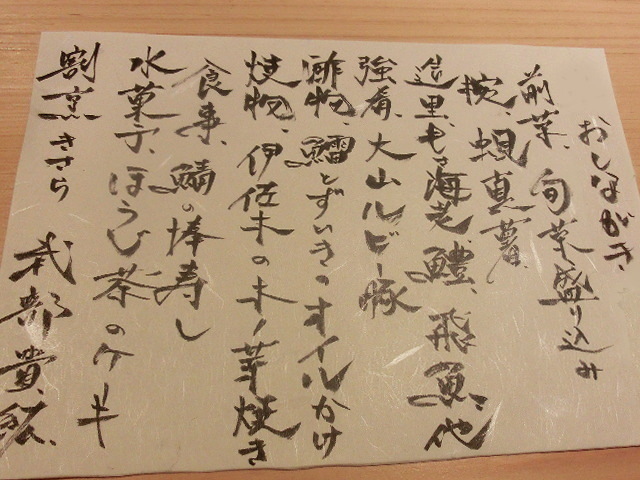 おしながき
前菜、旬菜盛り込み
椀、蜆真薯
造里、もさ海老、鱧、飛魚、他
強肴、大山ルビー豚
酢物、鱸とずいきのオイルかけ
焼物、伊佐木の木ノ芽焼き
食事、鯖の棒寿し
水菓子、ほうじ茶のケーキ
割烹きさら
部貴